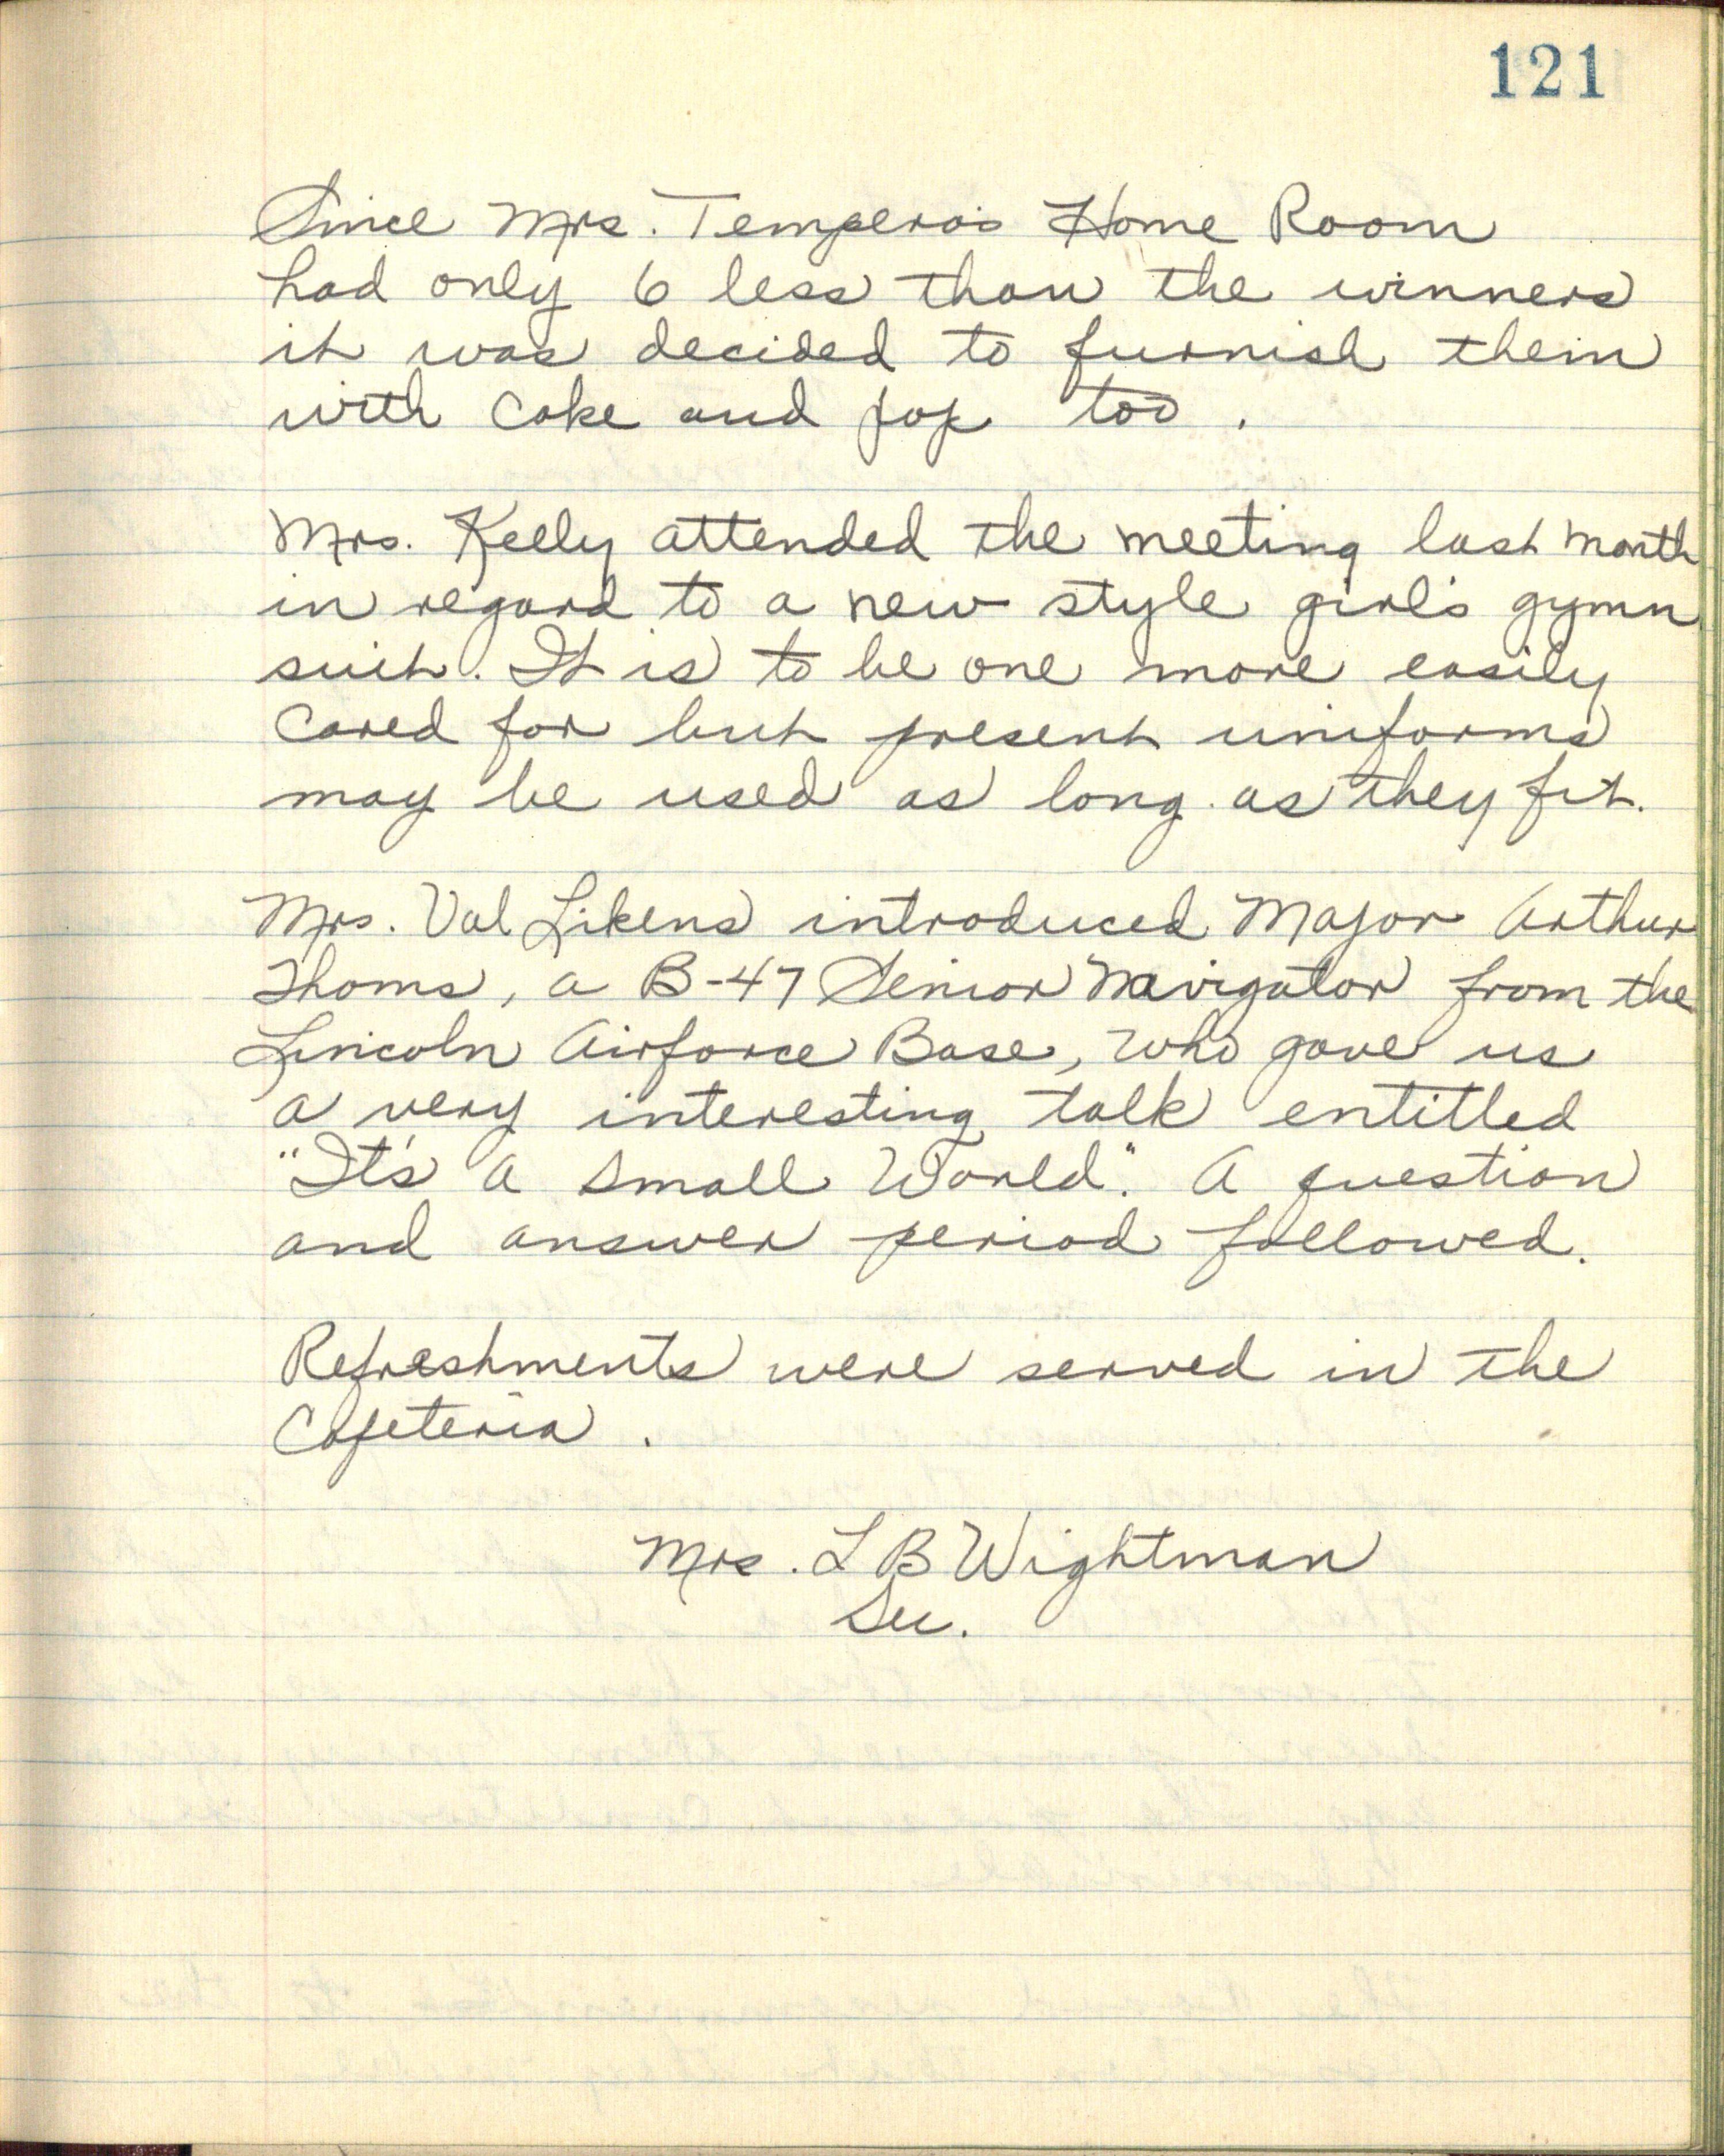 121
Since Mrs. Tempero's Home Room
had only 6 less than the winners
it was decided to furnish them
with cake and pop too.
Mrs. Kelly attended the meeting last month
in regard to a new style girl's gymn
suit. It is to be one more easily
cared for but present uniforms
may be used as long as they fit.
Mrs. Val Likens introduced Major Arthur
Thoms, a B-47 Senior Navigator from the
Lincoln Airforce Base, who gave us
a very interesting talk entitled
"It's a Small World". A question
and answer period followed.
Refreshments were served in the
Cafeteria.
Mrs. L B Wightman
Sec.